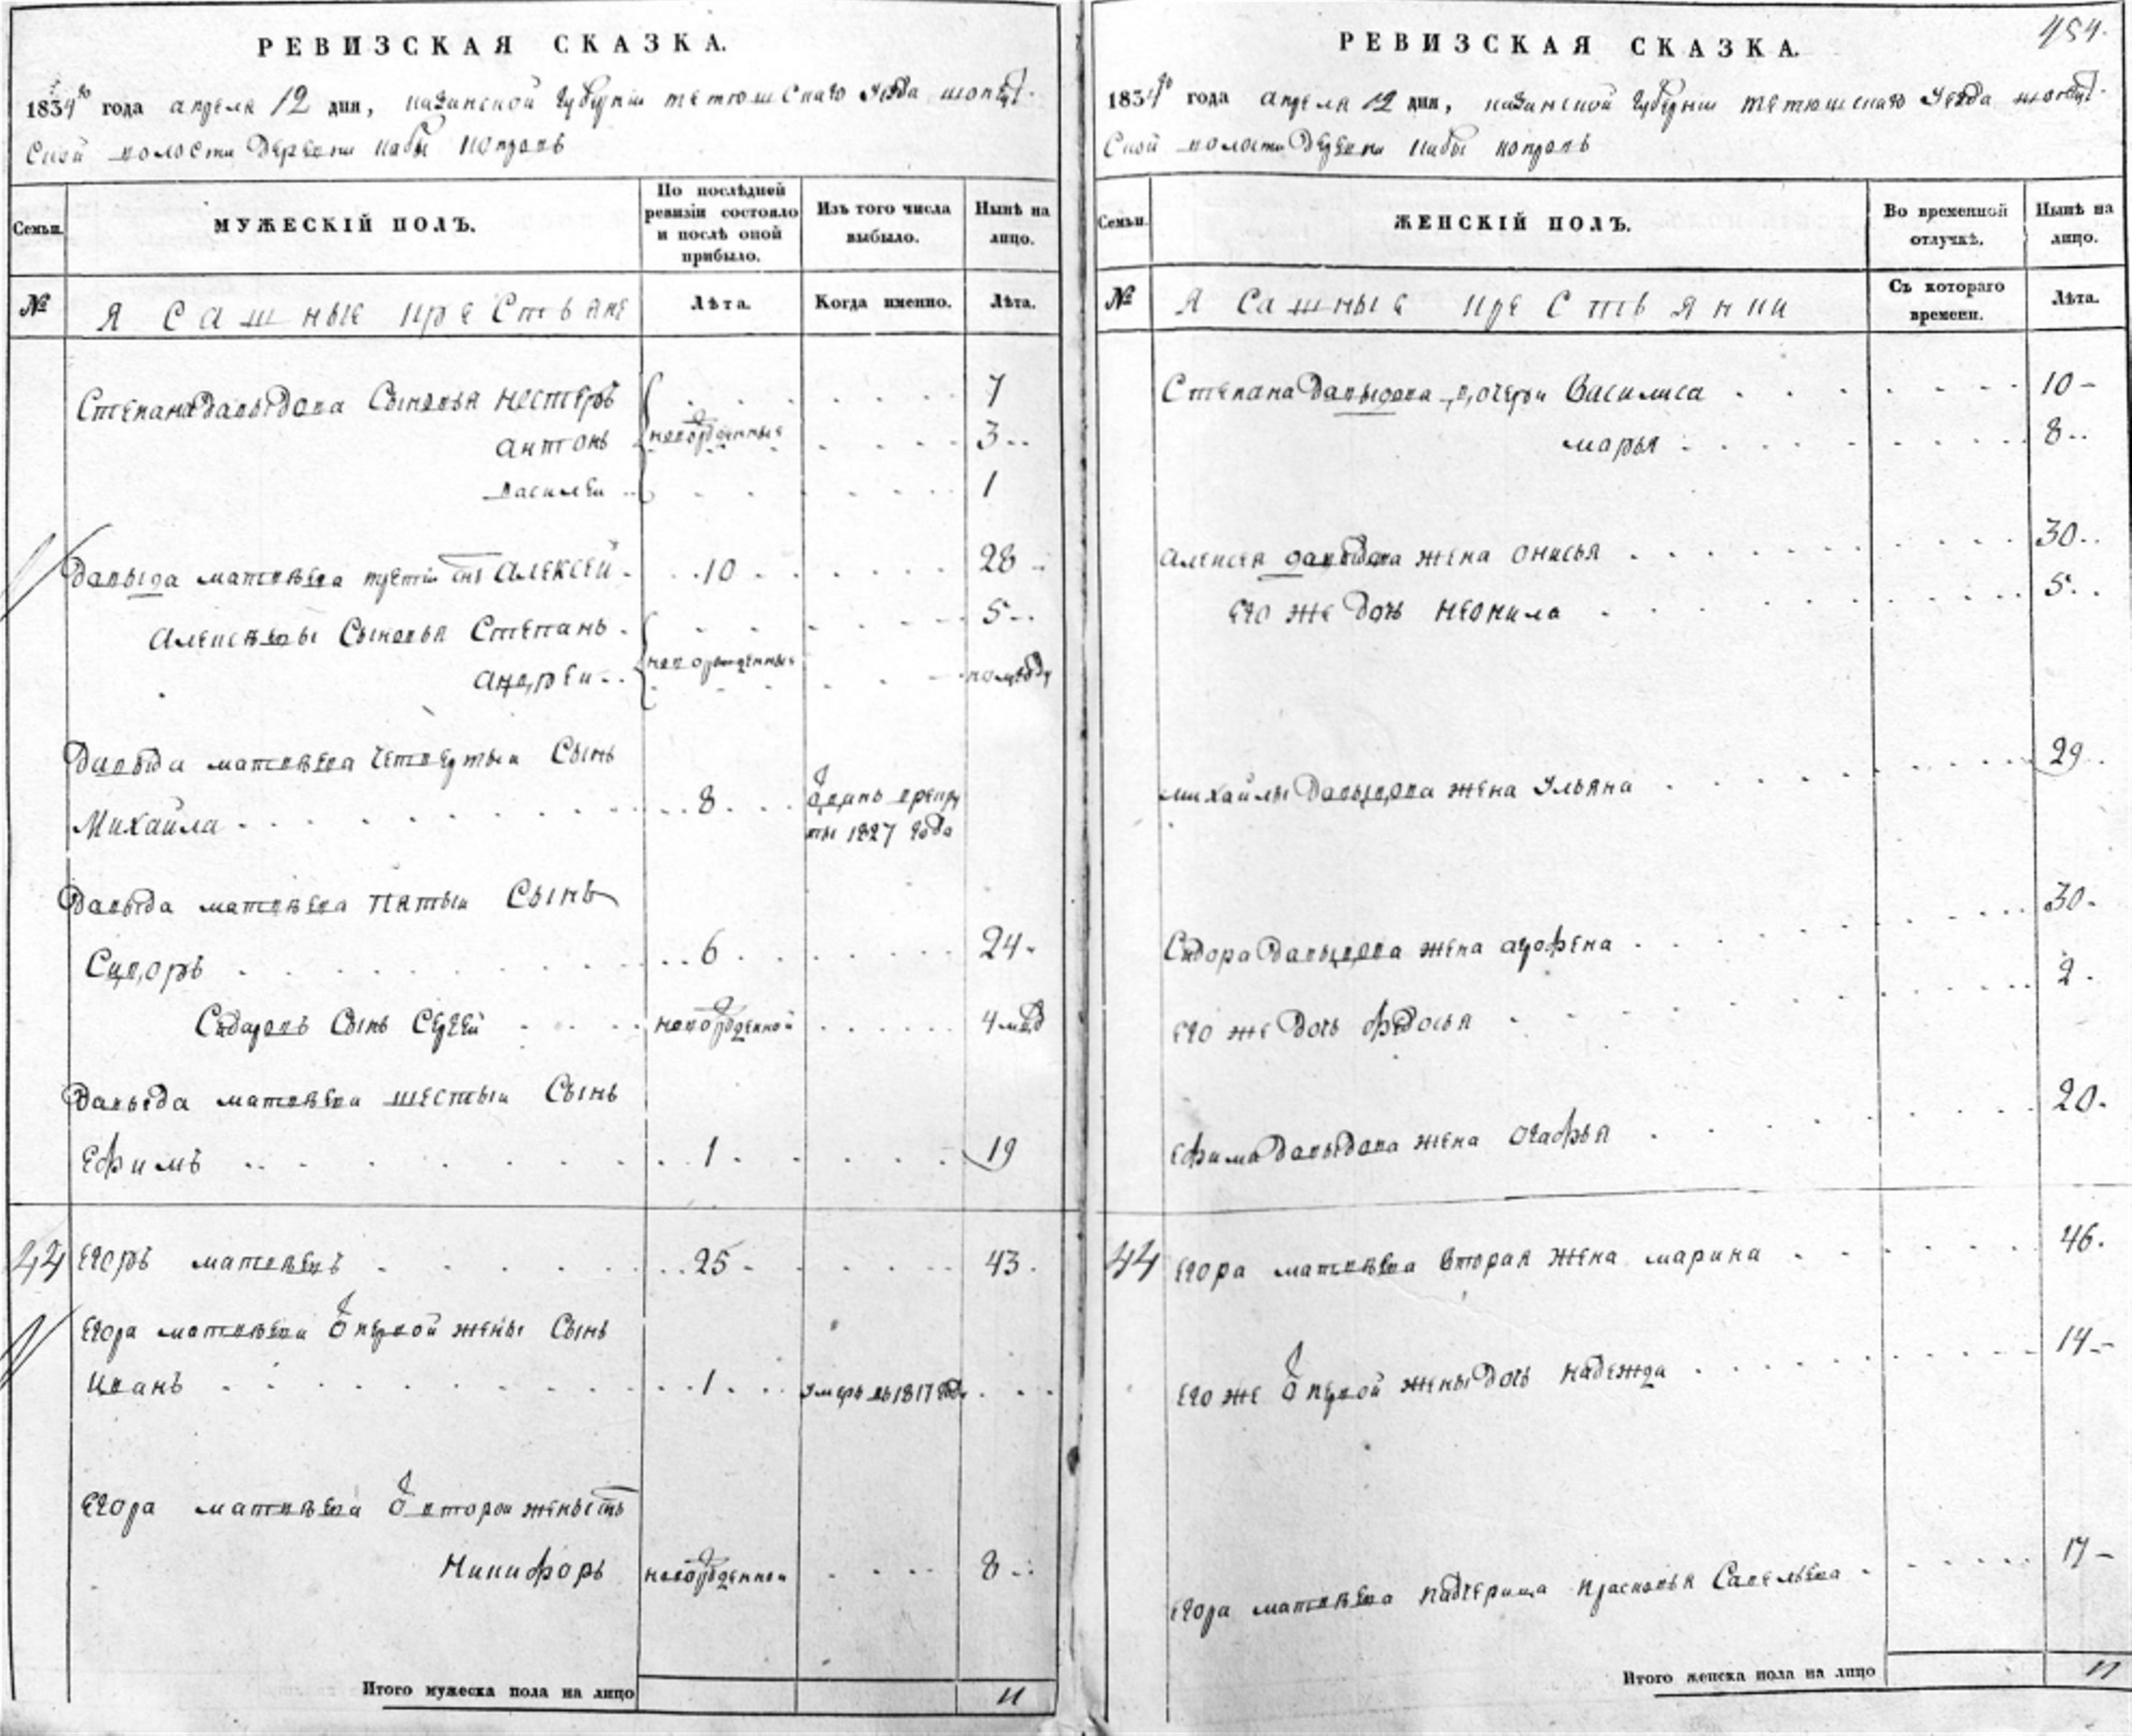 РЕВИЗСКАЯ СКАЗКА.
1834го года апреля 12 дня, казанской губернии тетюшскаго уезда
ской волости деревни кабы копровъ
Семьи.
МУЖЕСКІЙ ПОЛЪ.
По послѣдней ревизіи состояло и послѣ оной прибыло.
Изъ того числа выбыло.
Нынѣ на лицо.
№
Ясашные крестьяне
Лѣта.
Когда именно.
Лѣта.
Степана давыдова Сыновья нестеръ 7
антонъ новорожденныя 3
василеи 1
давыда матвѣева третіи снъ АЛЕКСЕЙ 10 28
алексѣевы Сыновья Степанъ 5
андреи новорожденныя полугоду
Давыда матвѣева четвертыи Сынъ
Михайла 8 въ рекруты 1827 года
Давыда матвѣева пятыи Сынъ
Сидоръ 6 24
Сидаровъ Сынъ Сергей новорожденной 4 мед
Давыда матвѣева шестыи Сынъ
Ефимъ 1 19
44 Егоръ матвѣевъ 25 43
Егора матвѣева ѿ первой жены Сынъ
Иванъ 1 умеръ въ 1817 году
Егора матвѣева ѿ второи жены снъ
Никифоръ новорожденнои 8
Итого мужеска пола на лицо 11
РЕВИЗСКАЯ СКАЗКА.
454.
1834го года апреля 12 дня, казанской губернии тетюшскаго уезда
ской волости деревни кабы копровъ
Семьи.
ЖЕНСКІЙ ПОЛЪ.
Во временной отлучкѣ.
Нынѣ на лицо.
№
Ясашные крестьянки
Съ котораго времени.
Лѣта.
Степана давыдова дочери василиса 10
марья 8
алексея давыдова жена онисья 30
его же дочь неонила 5
михайлы давыдова жена ульяна 29
Сидора давыдова жена агрофена 30
его же дочь федосья 2
ефима давыдова жена огафья 20
44 егора матвѣева вторая жена марина 46
его же ѿ первой жены дочь надежда 14
егора матвѣева падчерица прасковья Савельева 17
Итого женска пола на лицо 11